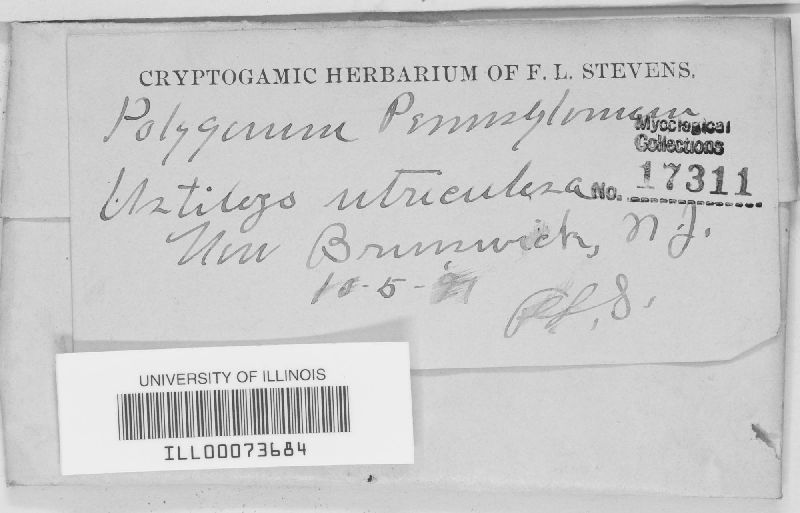 CRYPTOGAMIC HERBARIUM OF F. L. STEVENS.
Polygonum Pennsylvanicum
Mycological
Collections
Ustilago utriculosa No. 17311
New Brunswick, N.J.
10-5-'91
F.L.S.
UNIVERSITY OF ILLINOIS
ILL00073684